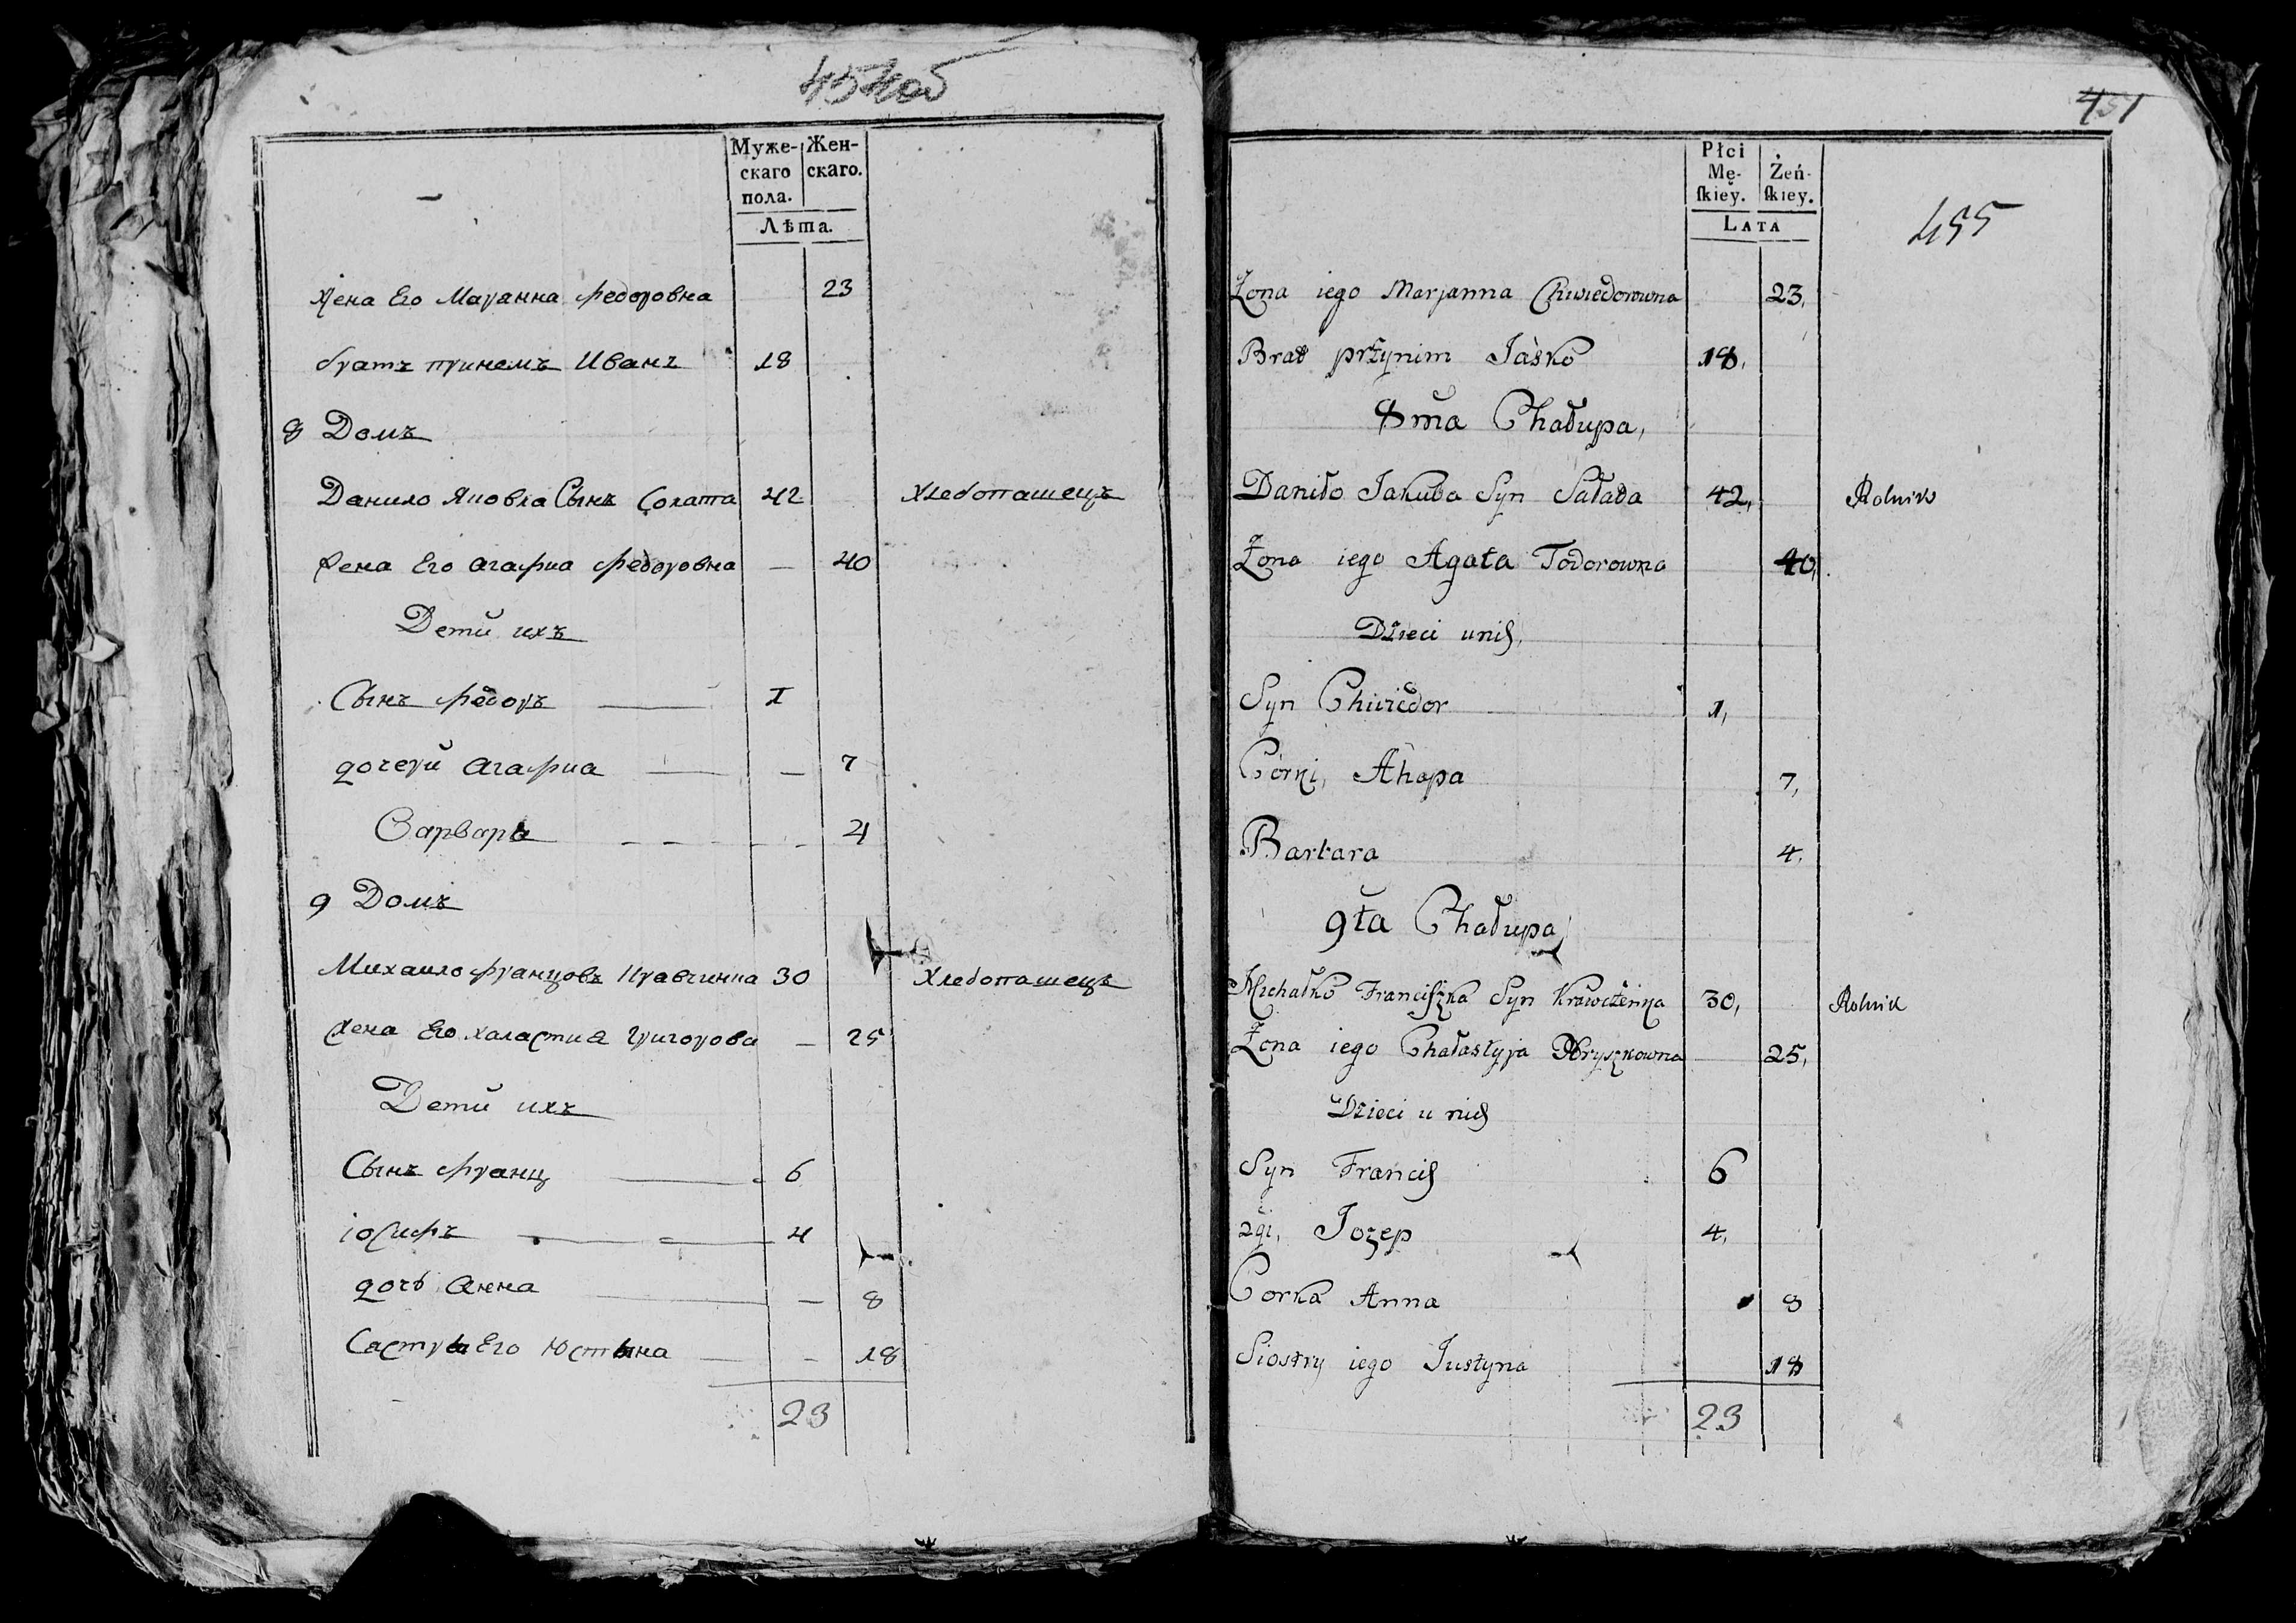 454об
Муже-
скаго
пола.
Жен-
скаго.
Лѣта.
жена Его Марꙗнна Федоровна 23
братъ принемъ Иванъ 18
8 Домъ
Данило Яковва Сынъ Солата 42 Хлебопашецъ
жена Его Агафиа Федоровна — 40
Дети ихъ
Сынъ Федоръ 1
дочери Агафиа — 7
Варвара 4
9 Домъ
Михаило Францовъ Кравчинка 30 Хлебопашецъ
жена Его Халастиа Григорова — 25
Дети ихъ
Сынъ Франц 6
іосифъ 4
дочь Анна — 8
Састра Его Юстына — 18
23
451
455
Płci
Mę-
ſkiey.
Żeń-
ſkiey.
LATA
Żona iego Marjanna Chwiedorowna 23,
Brat przynim Jaśko 18,
8ma Chałupa,
Daniło Jakuba Syn Sałata 42, Rolnik
Żona iego Agata Todorowna 40,
Dzieci unich,
Syn Chwiedor 1,
Córki, Ahapa 7,
Barbara 4,
9ta Chałupa,
Michałko Franciszka Syn Krawczenia 30, Rolnik
Żona iego Chałastyja Hryszkowna 25,
Dzieci u nich
Syn Francis 6
2gi, Jozep 4,
Corka Anna 8
Siostry iego Justyna 18
23